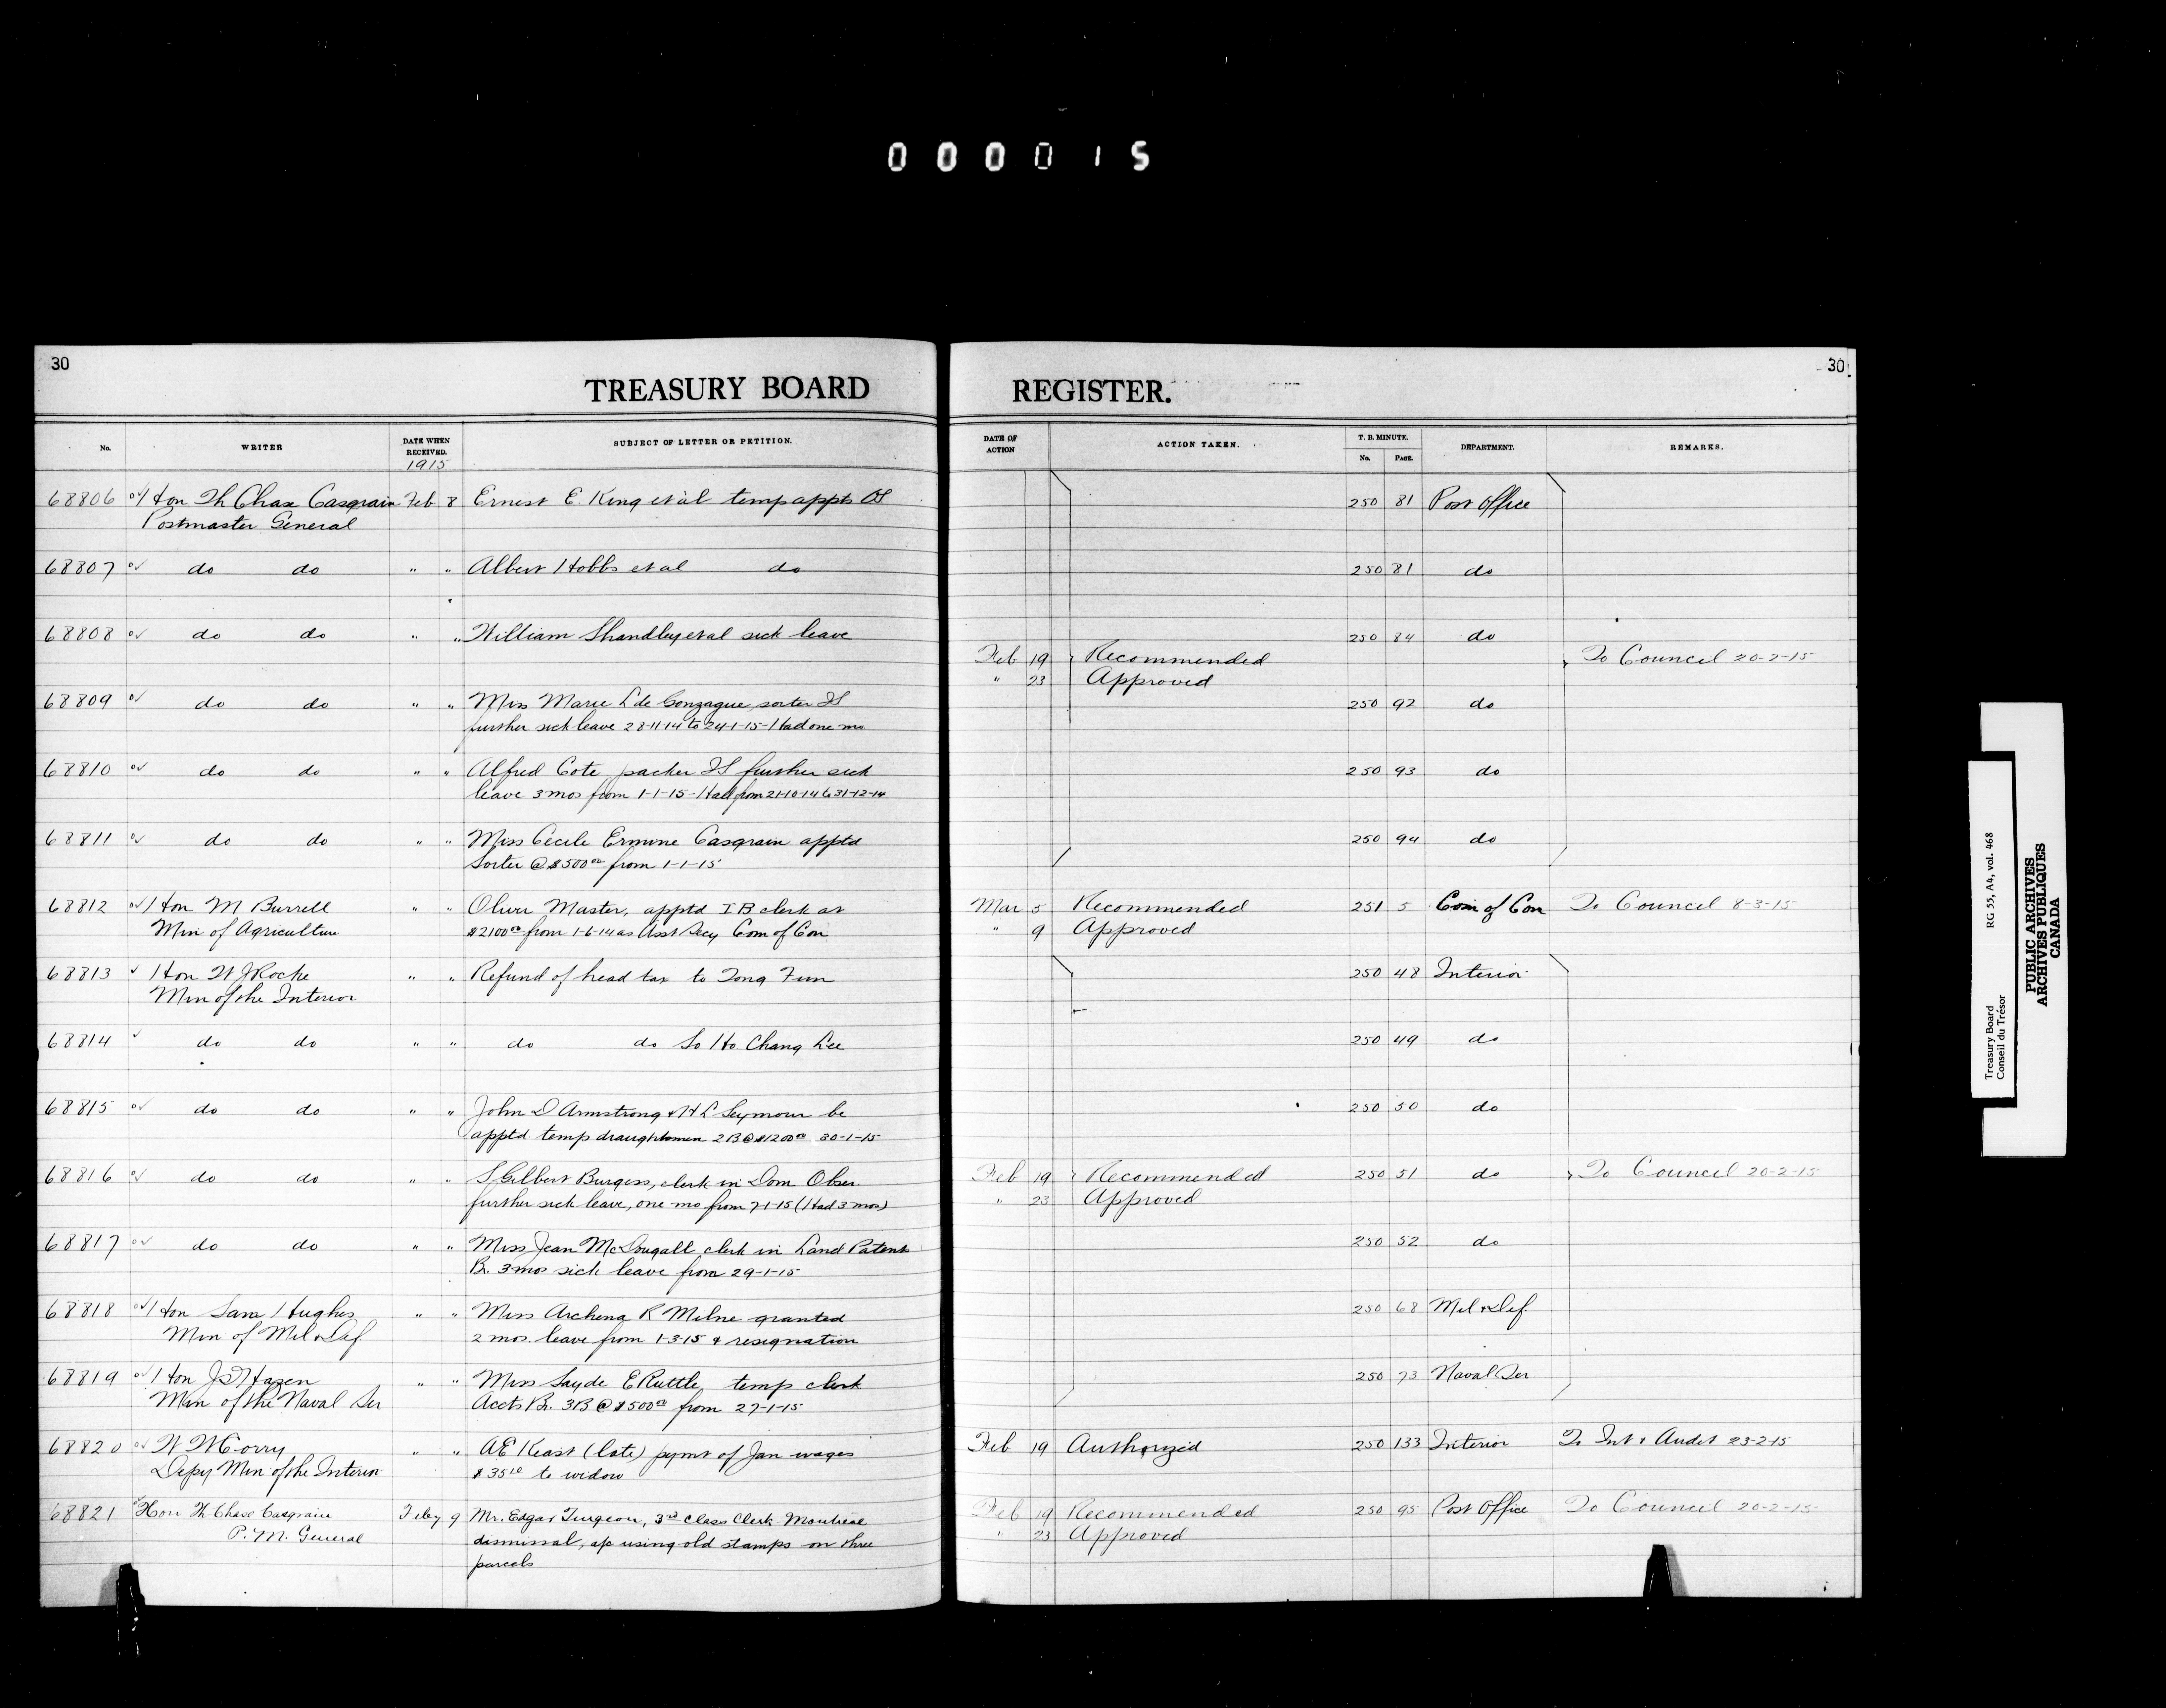 000015
30
TREASURY BOARD
REGISTER.
30
No.
WRITER
DATE WHEN RECEIVED.
1915
SUBJECT OF LETTER OR PETITION.
DATE OF ACTION
ACTION TAKEN.
T. B. MINUTE.
No. PAGE.
DEPARTMENT.
REMARKS.
68806 Hon Th Chase Casgrain Feb 8 Ernest E. King et al temp appts 250 81 Post Office
Postmaster General
68807 do do " " Albert Hobbs et al do 250 81 do
68808 do do " " William Shandley et al sick leave 250 84 do
Feb 19 Recommended To Council 20-2-15
" 23 Approved
68809 do do " " Miss Marie L de Gonzague, sorter 250 92 do
further sick leave 28-11-14 to 24-1-15 - Had one mo
68810 do do " " Alfred Cote packer further sick 250 93 do
leave 3 mos from 1-1-15 - Had from 21-10-14 to 31-12-14
68811 do do " " Miss Cecile Ermine Casgrain apptd 250 94 do
Sorter @ $500 00 from 1-1-15
68812 Hon M Burrell " " Oliver Master, apptd I B clerk at Mar 5 Recommended 251 5 Com of Con To Council 8-3-15
Min of Agriculture $2100 00 from 1-6-14 as Asst Secy Com of Con " 9 Approved
68813 Hon W J Roche " " Refund of head tax to Tong Fun 250 48 Interior
Min of the Interior
68814 do do " " do do to Ho Chang Lee 250 49 do
68815 do do " " John D Armstrong & H L Seymour be 250 50 do
apptd temp draughtsmen 2B @ $1200 00 30-1-15
68816 do do " " S Gilbert Burgess, clerk in Dom Obser. Feb 19 Recommended 250 51 do To Council 20-2-15
further sick leave, one mo from 7-1-15 (Had 3 mos) " 23 Approved
68817 do do " " Miss Jean McDougall clerk in Land Patents 250 52 do
Br. 3 mos sick leave from 29-1-15
68818 Hon Sam Hughes " " Miss Archena R Milne granted 250 68 Mil & Def.
Min of Mil & Def 2 mos. leave from 1-3-15 & resignation
68819 Hon J D Hazen " " Miss Sayde E Ruttle temp clerk 250 73 Naval Ser
Min of the Naval Ser Accts Br. 3B @ $500 00 from 27-1-15
68820 W W Corry " " A E Keast (late) pymt of Jan wages Feb 19 Authorized 250 133 Interior To Int & Audit 23-2-15
Depy Min of the Interior $35 to widow
68821 Hon Th Chase Casgrain Feby 9 Mr. Edgar Turgeon, 3rd Class Clerk Montreal Feb 19 Recommended 250 95 Post Office To Council 20-2-15
P. M. General dismissal, a/c using old stamps on three " 23 Approved
parcels
Treasury Board
Conseil du Trésor
RG 55, A4, vol. 468
PUBLIC ARCHIVES
ARCHIVES PUBLIQUES
CANADA